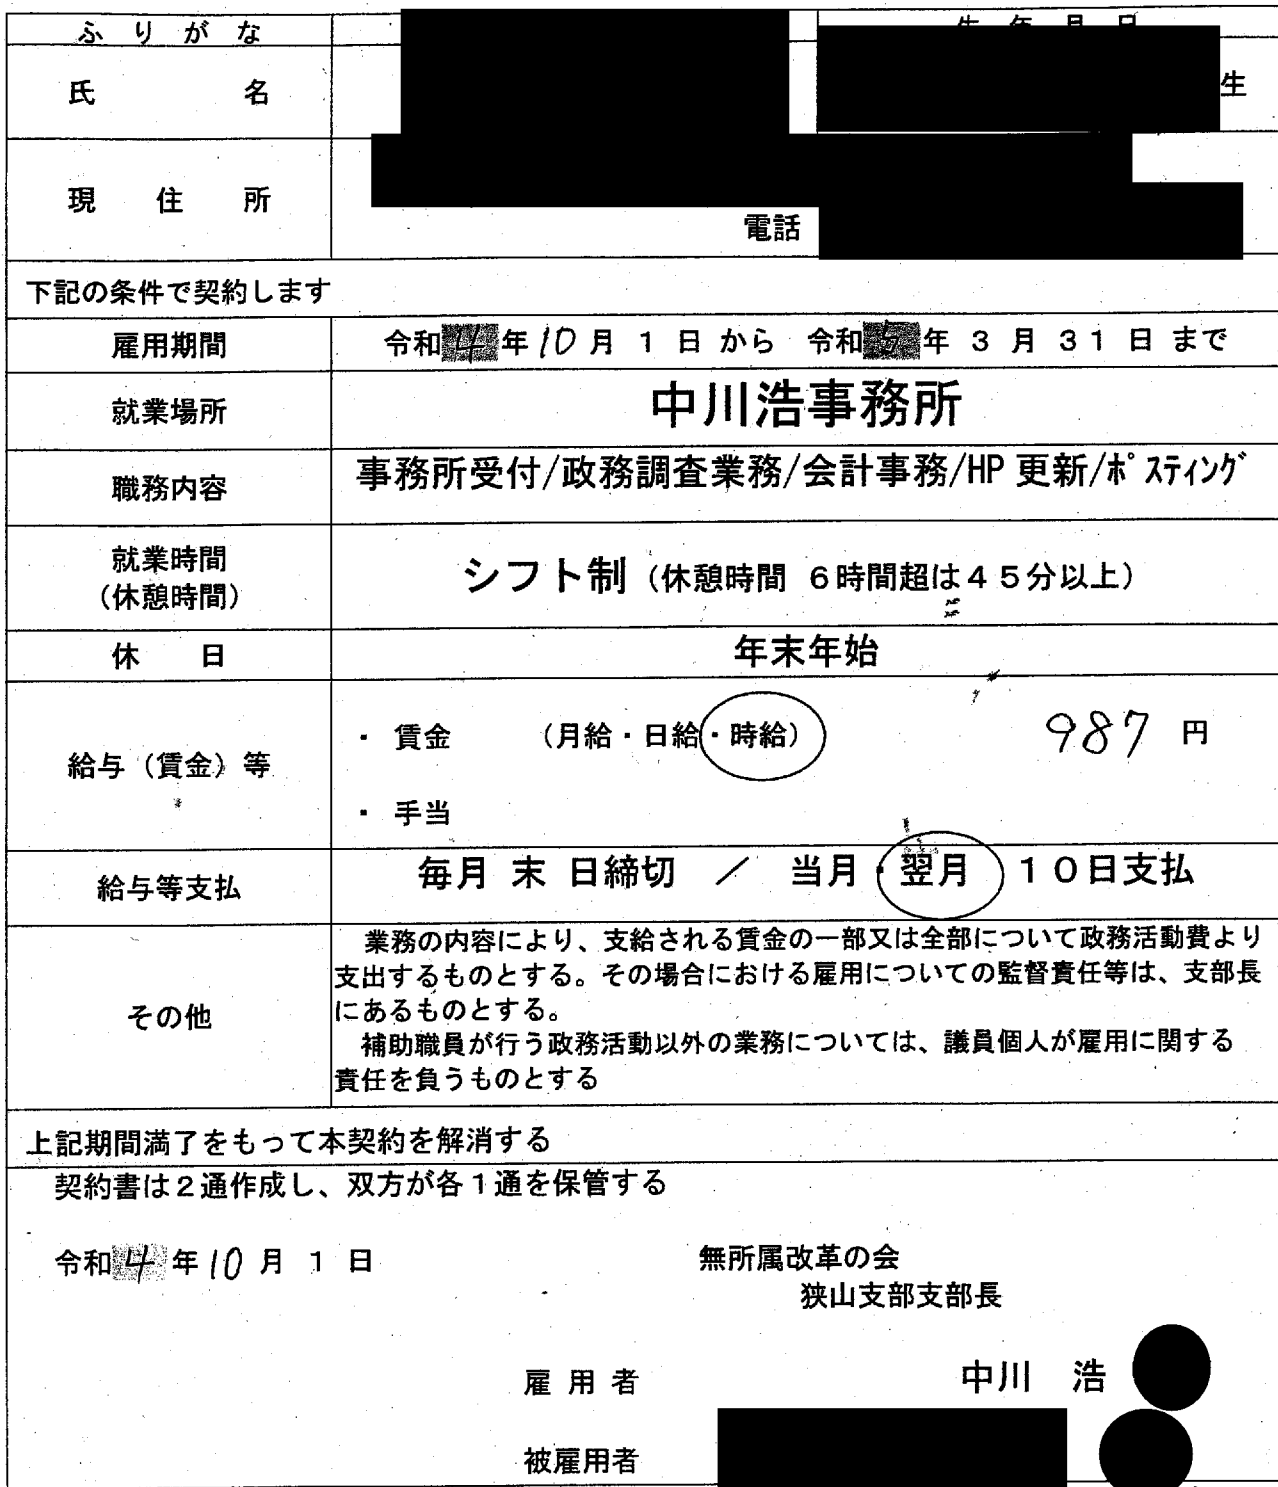 ふりがな
生年月日
氏名
生
現住所
電話
下記の条件で契約します
雇用期間 令和4年10月1日から 令和5年3月31日まで
就業場所 中川浩事務所
職務内容 事務所受付/政務調査業務/会計事務/HP更新/ポスティング
就業時間
(休憩時間)
シフト制(休憩時間 6時間超は45分以上)
休日 年末年始
給与(賃金)等
・賃金 (月給・日給・時給) 987円
・手当
給与等支払 毎月末日締切 / 当月・翌月 10日支払
その他
業務の内容により、支給される賃金の一部又は全部について政務活動費より
支出するものとする。その場合における雇用についての監督責任等は、支部長
にあるものとする。
補助職員が行う政務活動以外の業務については、議員個人が雇用に関する
責任を負うものとする
上記期間満了をもって本契約を解消する
契約書は2通作成し、双方が各1通を保管する
令和4年10月1日
無所属改革の会
狭山支部支部長
雇用者 中川 浩
被雇用者